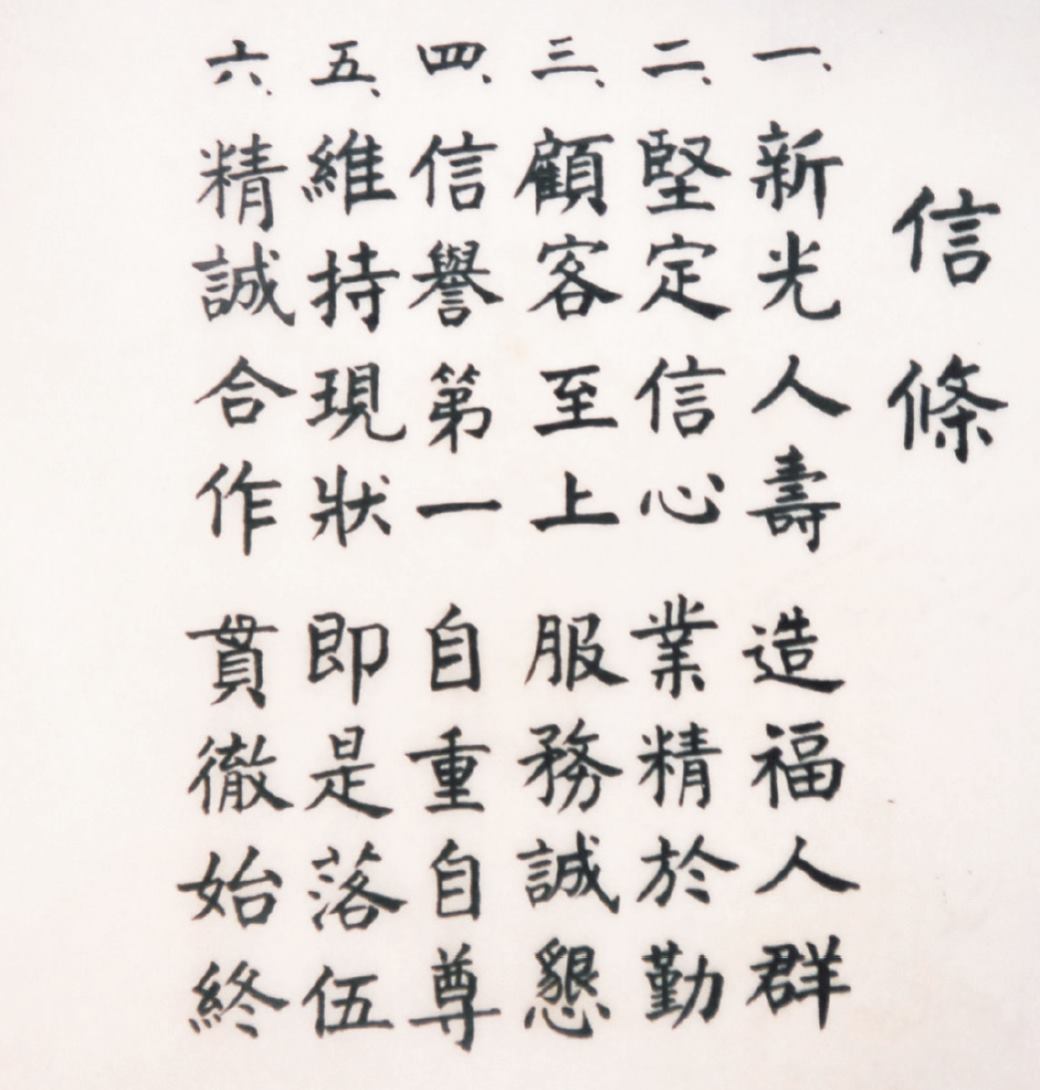 信條
一、新光人壽 造福人群
二、堅定信心 業精於勤
三、顧客至上 服務誠懇
四、信譽第一 自重自尊
五、維持現狀 即是落伍
六、精誠合作 貫徹始終